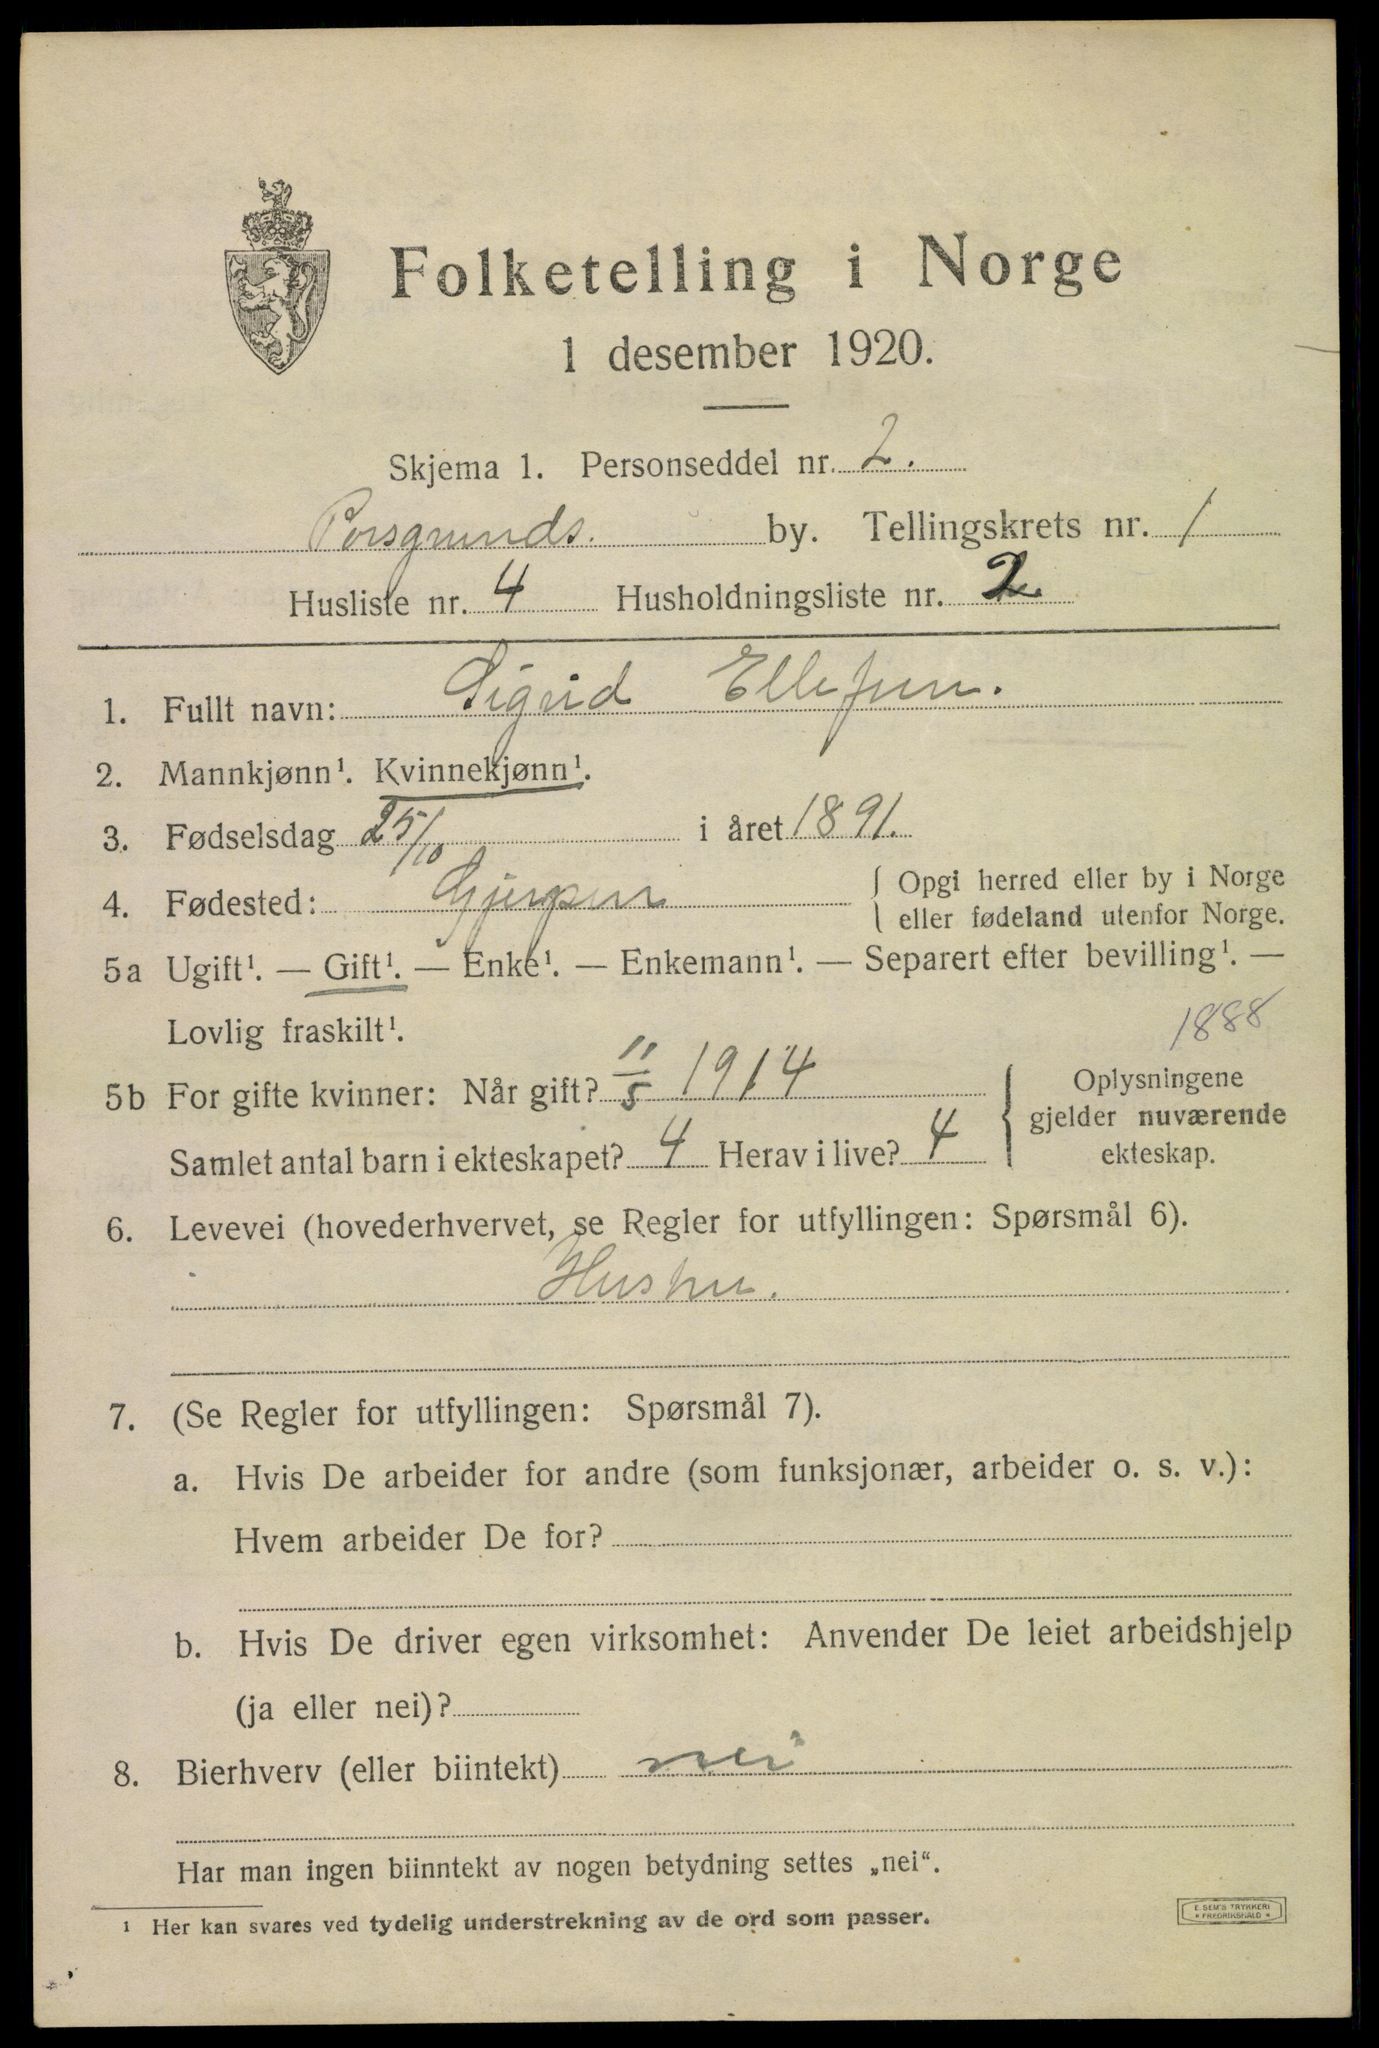 Folketelling i Norge
1 desember 1920.
Skjema 1. Personseddel nr. 2.
Porsgrunds. by. Tellingskrets nr. 1
Husliste nr. 4 Husholdningsliste nr. 2.
1. Fullt navn: Sigrid Ellefsen.
2. Mannkjønn¹. Kvinnekjønn¹.
3. Fødselsdag 25/10 i året 1891.
4. Fødested: Gjerpen { Opgi herred eller by i Norge
eller fødeland utenfor Norge.
5a Ugift¹. — Gift¹. — Enke¹. — Enkemann¹. — Separert efter bevilling¹. —
Lovlig fraskilt¹.
1888
5b For gifte kvinner: Når gift? 11/5 1914
Samlet antal barn i ekteskapet? 4 Herav i live? 4
Oplysningene
gjelder nuværende
ekteskap.
6. Levevei (hovederhvervet, se Regler for utfyllingen: Spørsmål 6).
Hustru.
7. (Se Regler for utfyllingen: Spørsmål 7).
a. Hvis De arbeider for andre (som funksjonær, arbeider o. s. v.):
Hvem arbeider De for?
b. Hvis De driver egen virksomhet: Anvender De leiet arbeidshjelp
(ja eller nei)?
8. Bierhverv (eller biintekt) nei
Har man ingen biinntekt av nogen betydning settes „nei“.
¹ Her kan svares ved tydelig understrekning av de ord som passer.
E. SEM'S TRYKKERI
* FREDRIKSHALD *